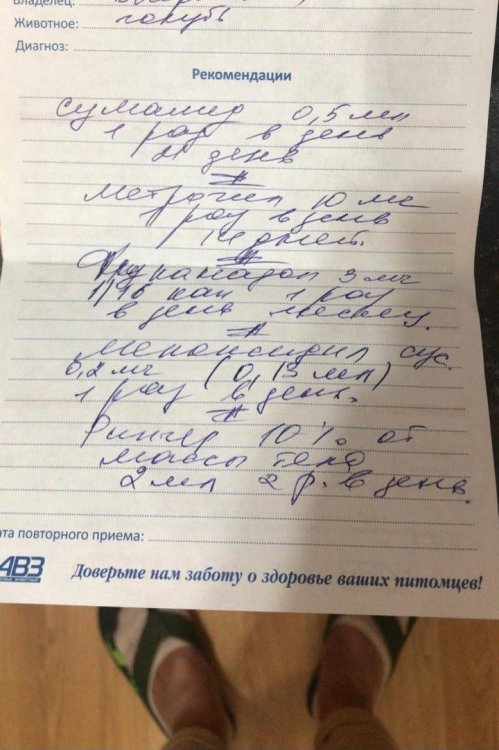 Владелец:
Животное: голубь
Диагноз:
Рекомендации
сумамед 0,5 мл
1 раз в день
21 день
Метрогил 10 мг
1 раз в день
14 дней.
3 мг
1 раз
в день месяц.
сус.
0,2 мг (0,13 мл)
1 раз в день.
Рингер 10% от
массы тела
2 мл 2 р. в день.
ата повторного приема:
АВЗ
Доверьте нам заботу о здоровье ваших питомцев!